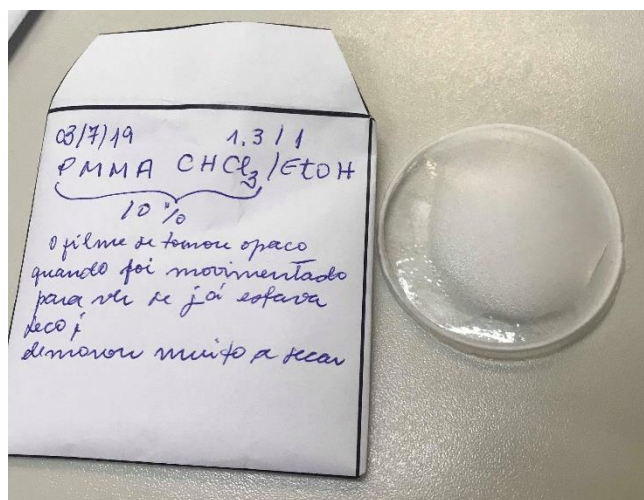 03/7/19 1.3 / 1
PMMA CHCl₃ / EtOH
10 %
O filme se tornou opaco
quando foi movimentado
para ver se já estava
seco;
demorou muito a secar